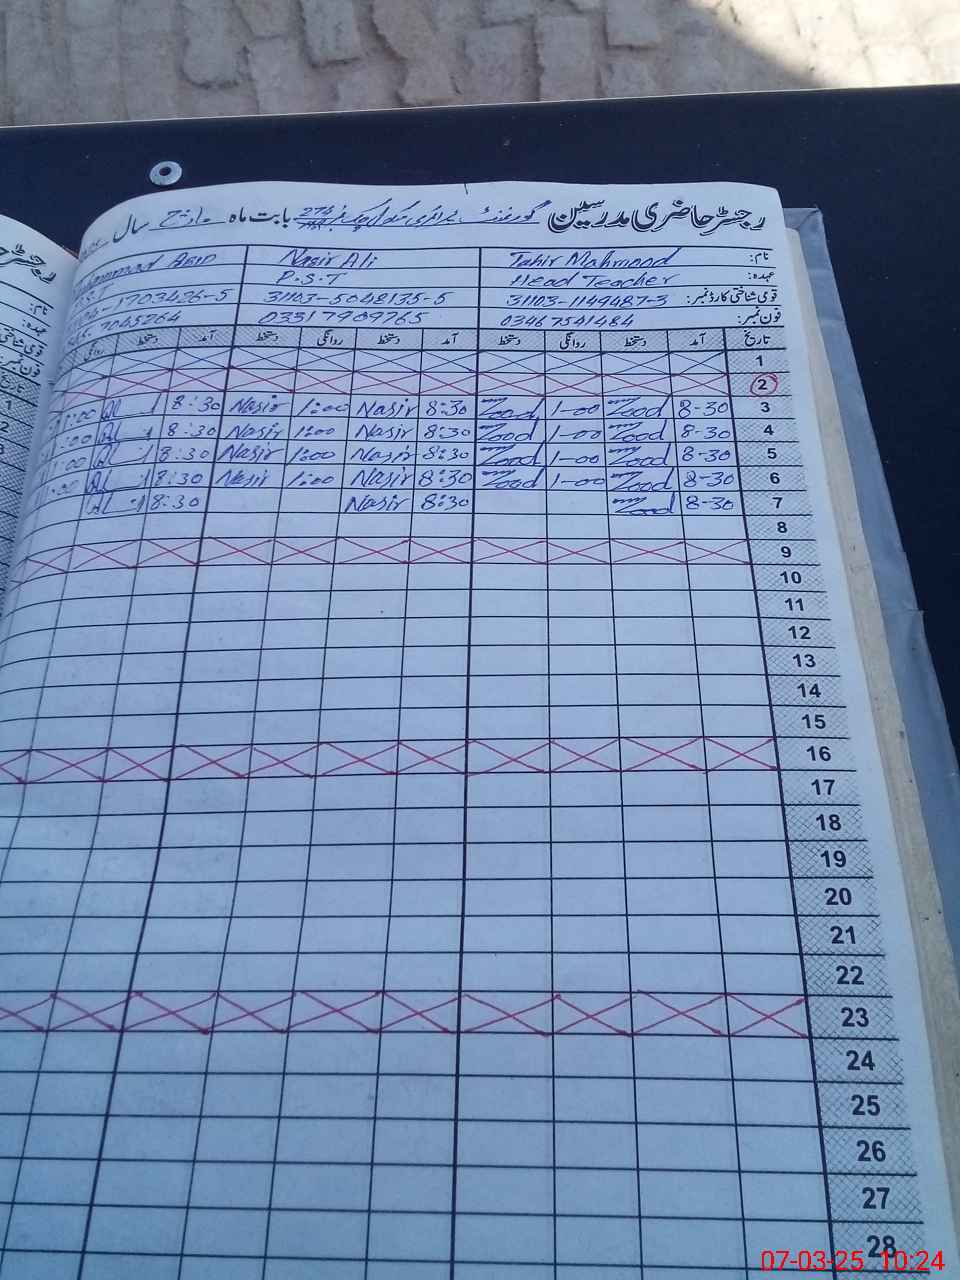 رجسٹر حاضری مدرسین گورنمنٹ پرائمری سکول چک نمبر 274/HR بابت ماہ مارچ سال
نام: Tahir Mahmood Nasir Ali Muhammad
عہدہ: Head Teacher P.S.T P.S.T
قومی شناختی کارڈ نمبر: 31103-1149487-3 31103-5048135-5 1703426-5
فون نمبر: 03467541484 03317909765 7045264
تاریخ آمد دستخط روانگی دستخط آمد دستخط روانگی دستخط آمد دستخط روانگی
1
2
3 8-30 1-00 8:30 Nasir 1:00 Nasir 8:30 1:00
4 8-30 1-00 8:30 Nasir 1:00 Nasir 8:30 :00
5 8-30 1-00 8:30 Nasir 1:00 Nasir 8:30 1:00
6 8-30 1-00 8:30 Nasir 1:00 Nasir 8:30 :00
7 8-30 8:30 Nasir 8:30
8
9
10
11
12
13
14
15
16
17
18
19
20
21
22
23
24
25
26
27
28
07-03-25 10:24